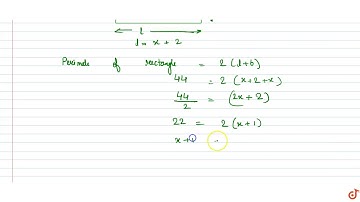 l
l = x + 2
Perimeter of rectangle = 2 (l+b)
44 = 2 (x+2+x)
44/2 = (2x+2)
22 = 2 (x+1)
x+1